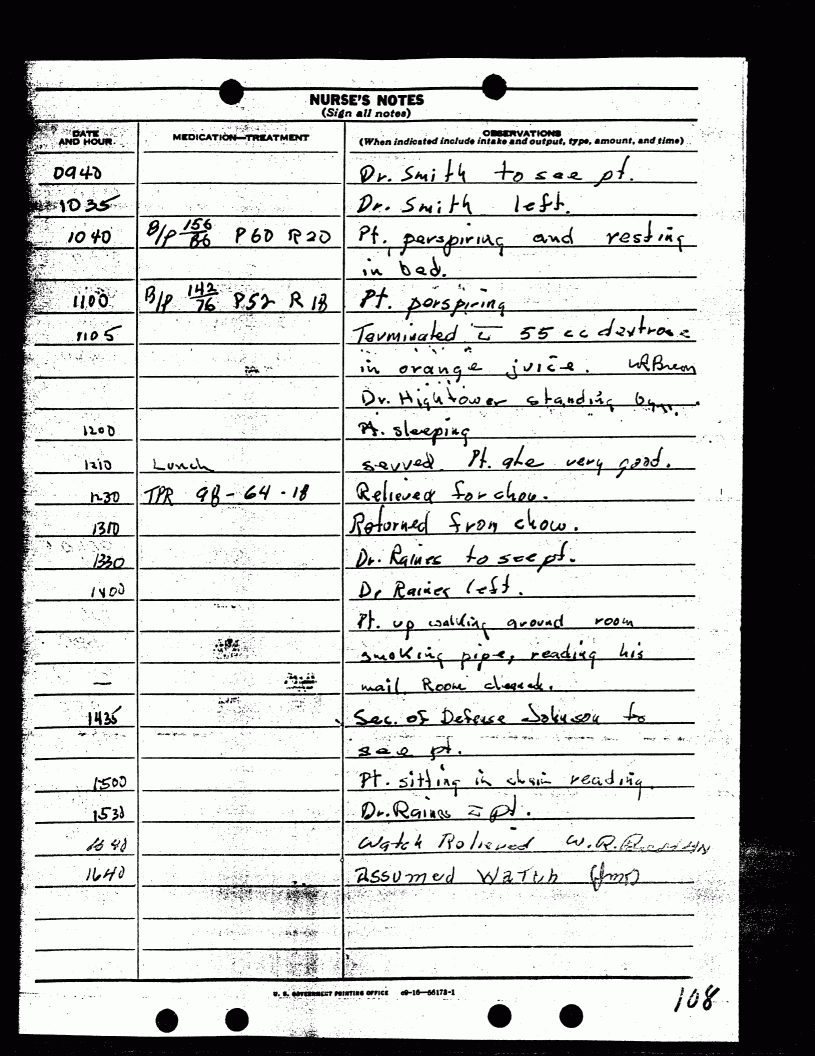 NURSE'S NOTES
(Sign all notes)
DATE AND HOUR MEDICATION—TREATMENT OBSERVATIONS (When indicated include intake and output, type, amount, and time)
0940 Dr. Smith to see pt.
1035 Dr. Smith left.
1040 B/P 156/86 P60 R20 Pt. perspiring and resting
in bed.
1100 B/P 142/76 P52 R 18 Pt. perspiring
1105 Terminated c̄ 55 cc dextrose
in orange juice. WRBreon
Dr. Hightower standing by
1200 Pt. sleeping
1210 Lunch served. Pt. ate very good.
1230 TPR 98-64-18 Relieved for chow.
1310 Returned from chow.
1330 Dr. Raines to see pt.
1400 Dr Raines left.
Pt. up walking around room
smoking pipe, reading his
— mail. Room cleaned.
1435 Sec. of Defense Johnson to
see pt.
1500 Pt. sitting in chair reading.
1530 Dr. Raines c̄ pt.
1640 Watch Relieved W.R.
1640 Assumed Watch
U. S. GOVERNMENT PRINTING OFFICE c9-16—66173-1
108